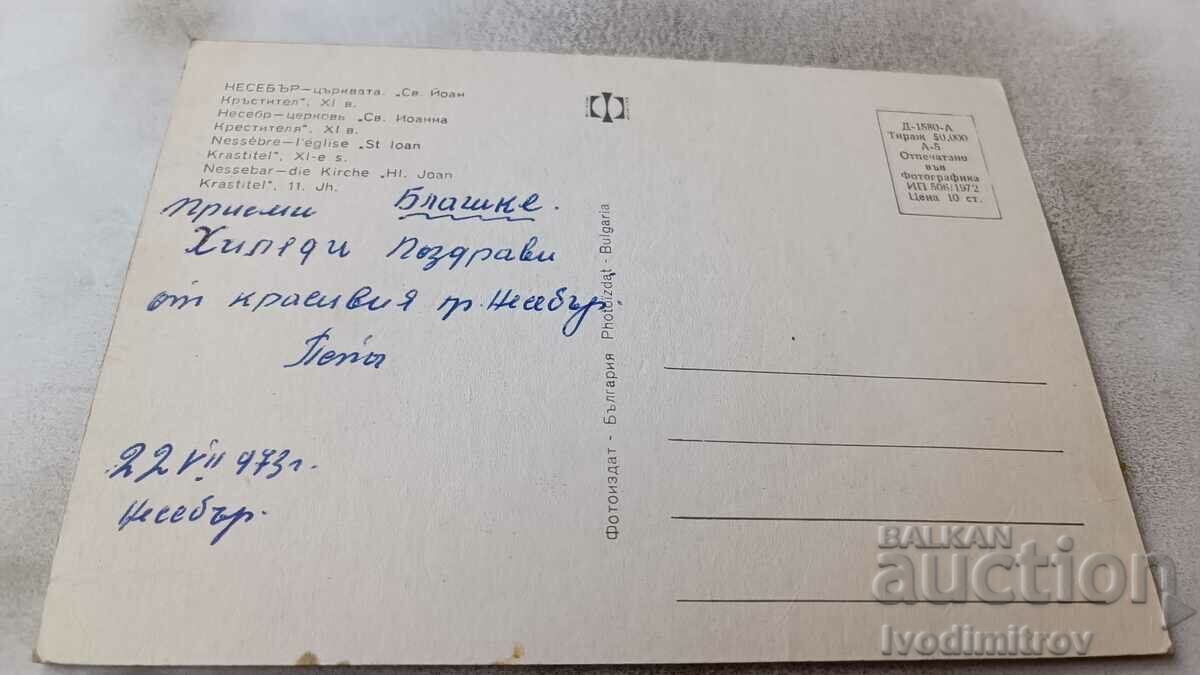 НЕСЕБЪР-църквата „Св. Йоан
Кръстител", XI в.
Несебр-церковь „Св. Иоанна
Крестителя", XI в.
Nessèbre-l'église „St Ioan
Krastitel", XI-e s.
Nessebar-die Kirche „Hl. Joan
Krastitel", 11. Jh.
Приеми Благшке.
Хиледи поздрави
от красивия гр. Несебър.
Пепи
22 VII 973 г.
Несебър.
Фотоиздат - България Photoizdat - Bulgaria
Д-1580-А
Тираж 50,000
А-5
Отпечатано
във
Фотографика
ИП 506/1972
Цена 10 ст.
BALKAN
auction
Ivodimitrov